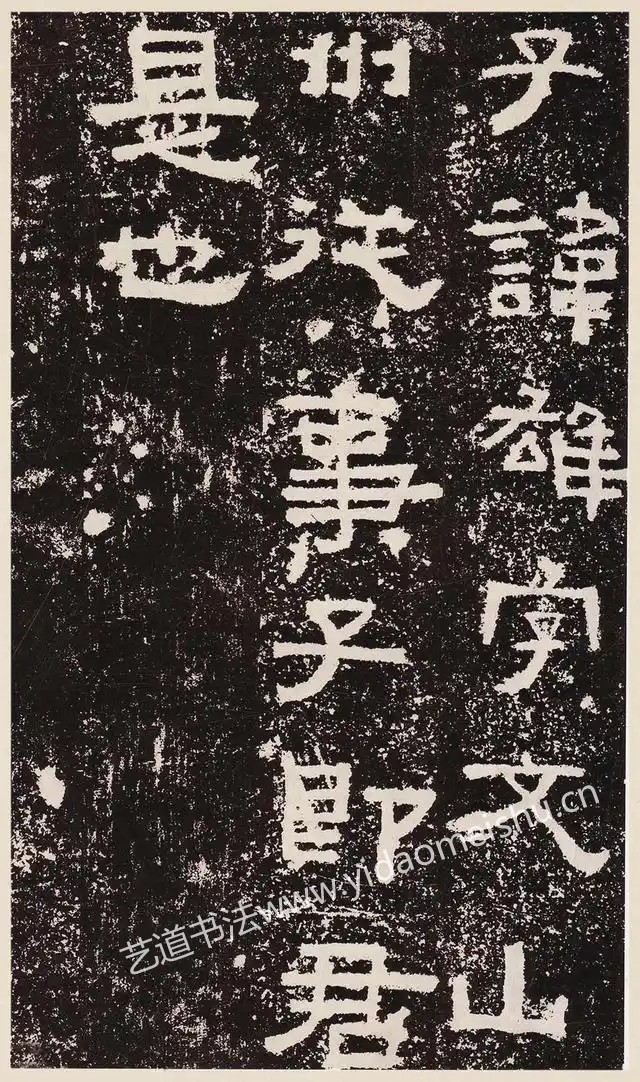 子諱雄字文山
州從事子即君
是也
艺道书法www.yidaomeishu.cn